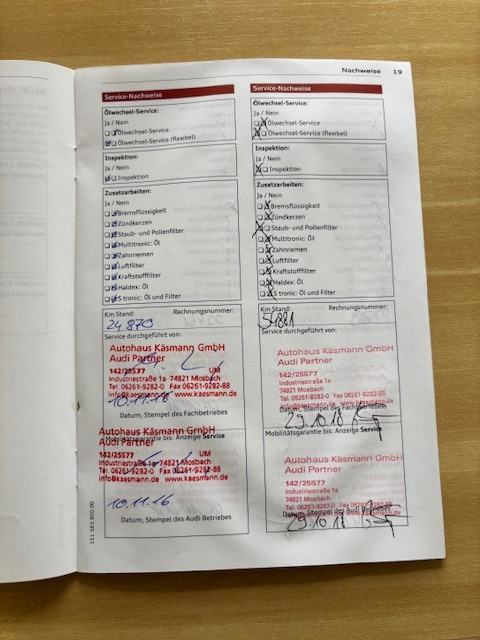 Nachweise 19
Service-Nachweise
Ölwechsel-Service:
Ja / Nein
Ölwechsel-Service
Ölwechsel-Service (flexibel)
Inspektion:
Ja / Nein
Inspektion
Zusatzarbeiten:
Ja / Nein
Bremsflüssigkeit
Zündkerzen
Staub- und Pollenfilter
Multitronic: Öl
Zahnriemen
Luftfilter
Kraftstofffilter
Haldex: Öl
S tronic: Öl und Filter
Km Stand: Rechnungsnummer:
24870
Service durchgeführt von:
Autohaus Käsmann GmbH
Audi Partner
142/25577 UM
Industriestraße 1a 74821 Mosbach
Tel. 06261-9282-0 Fax 06261-9282-88
info@kaesmann.de www.kaesmann.de
10.11.16
Datum, Stempel des Fachbetriebes
Autohaus Käsmann GmbH
Mobilitätsgarantie bis: Anzeige Service
Audi Partner
142/25577 UM
Industriestraße 1a 74821 Mosbach
Tel. 06261-9282-0 Fax 06261-9282-88
info@kaesmann.de www.kaesmann.de
10.11.16
Datum, Stempel des Audi Betriebes
151.561.850.00
Service-Nachweise
Ölwechsel-Service:
Ja / Nein
Ölwechsel-Service
Ölwechsel-Service (flexibel)
Inspektion:
Ja / Nein
Inspektion
Zusatzarbeiten:
Ja / Nein
Bremsflüssigkeit
Zündkerzen
Staub- und Pollenfilter
Multitronic: Öl
Zahnriemen
Luftfilter
Kraftstofffilter
Haldex: Öl
S tronic: Öl und Filter
Km Stand: Rechnungsnummer:
54881
Service durchgeführt von:
Autohaus Käsmann GmbH
Audi Partner
142/25577
Industriestraße 1a
74821 Mosbach
Tel. 06261-9282-0 Fax 06261-9282-88
info@kaesmann.de www.kaesmann.de
Datum, Stempel des Fachbetriebes
29.10.18
Mobilitätsgarantie bis: Anzeige Service
Autohaus Käsmann GmbH
Audi Partner
142/25577
Industriestraße 1a
74821 Mosbach
Tel. 06261-9282-0 Fax 06261-9282-88
info@kaesmann.de www.kaesmann.de
Datum, Stempel des Audi Betriebes
29.10.18